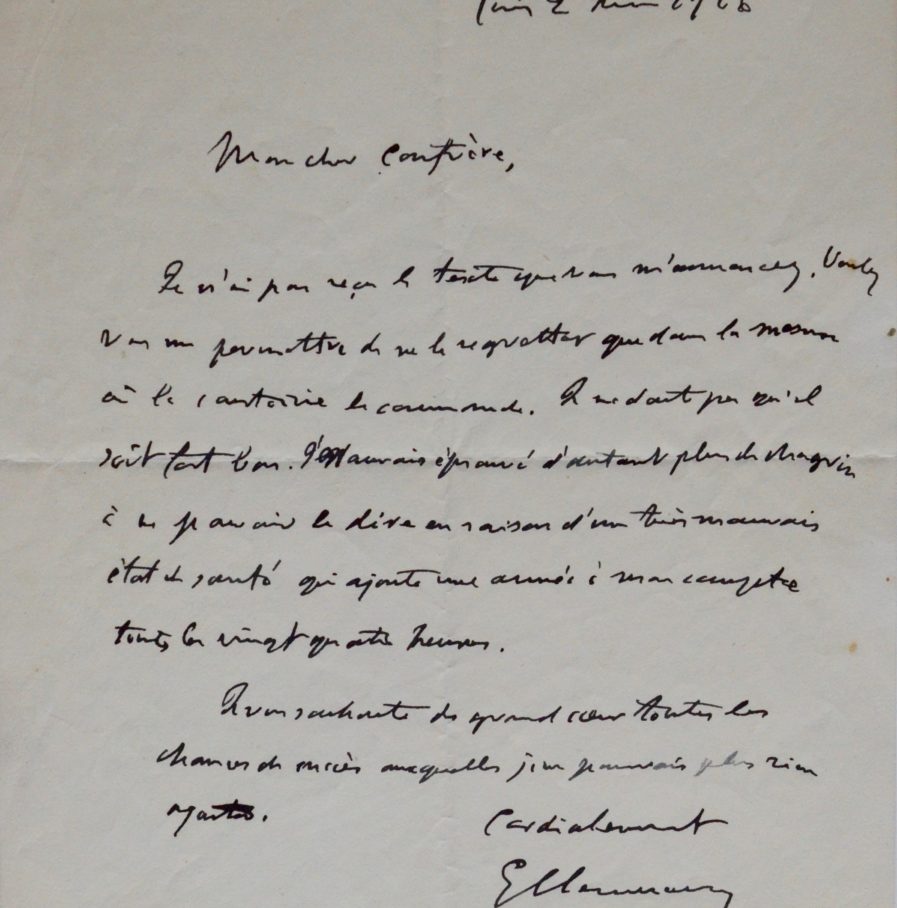 Mon cher Confrère,
Je n'ai pas reçu le texte que vous m'annoncez. Voulez
vous me permettre de ne le regretter que dans la mesure
où la courtoisie le commande. Je ne doute pas qu'il
soit fort bon. J'aurais éprouvé d'autant plus de chagrin
à ne pouvoir le dire en raison d'un très mauvais
état de santé qui ajoute une année à mon compte
toutes les vingt quatre heures.
Je vous souhaite de grand cœur toutes les
chances de succès auxquelles je ne pouvais plus rien
ajouter.
Cordialement